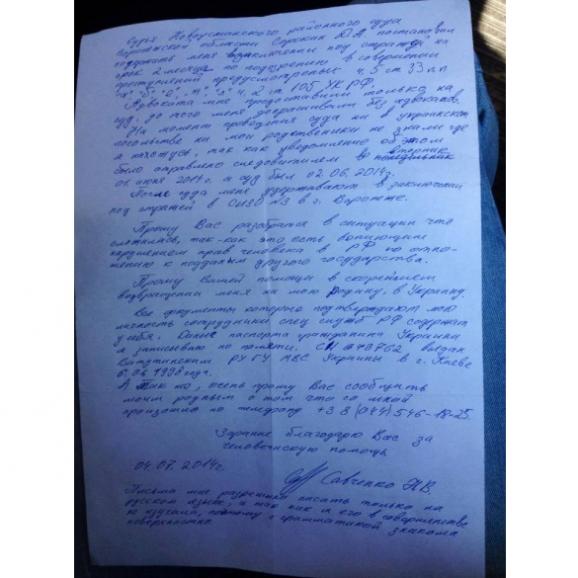 Судья Новоусманского районного суда
Воронежской области Сорокин Ю.А. постановил
подержать меня в заключении под стражей на
срок 2 месяца по подозрению в совершении
преступлений предусмотренных ч. 5 ст 33 п.п
"а" "б" "е", "ж" "з" ч. 2 ст 105 УК РФ.
Адвоката мне предоставили только на
суд. до того меня допрашивали без адвокатов.
На момент проведения суда ни в украинском
посольстве ни мои родственники не знали где
я нахожусь, так как уведомление об этом
было отправлено следователем во вторник
07.2014г. а суд был 02.07.2014г.
После суда меня удерживают в заключении
под стражей в СИЗО №3 в г. Воронеже.
Прошу Вас разобраться в ситуации что
сложилась, так-как это есть вопиющим
нарушением прав человека в РФ по отно-
шению к подданым другого государства.
Прошу Вашей помощи в скорейшем
возвращении меня на мою родину, в Украину.
Все документы которые подтверждают мою
личность сотрудники спец служб РФ содержат
у себя. Данные паспорта гражданина Украины
я записываю по памяти. СН выдан
Ватутинским РУ ГУ МВС Украины в г. Киеве
1998года.
А так же, очень прошу Вас сообщить
моим родным о том что со мной
произошло по телефону +38(044)546-18-25.
Заранее благодарю Вас за
человеческую помощь
04.07.2014г. Савченко Н.В.
Письма мне разрешено писать только на
русском языке, а так как я его в совершенстве
не изучала, поэтому с грамматикой знакома
поверхностно